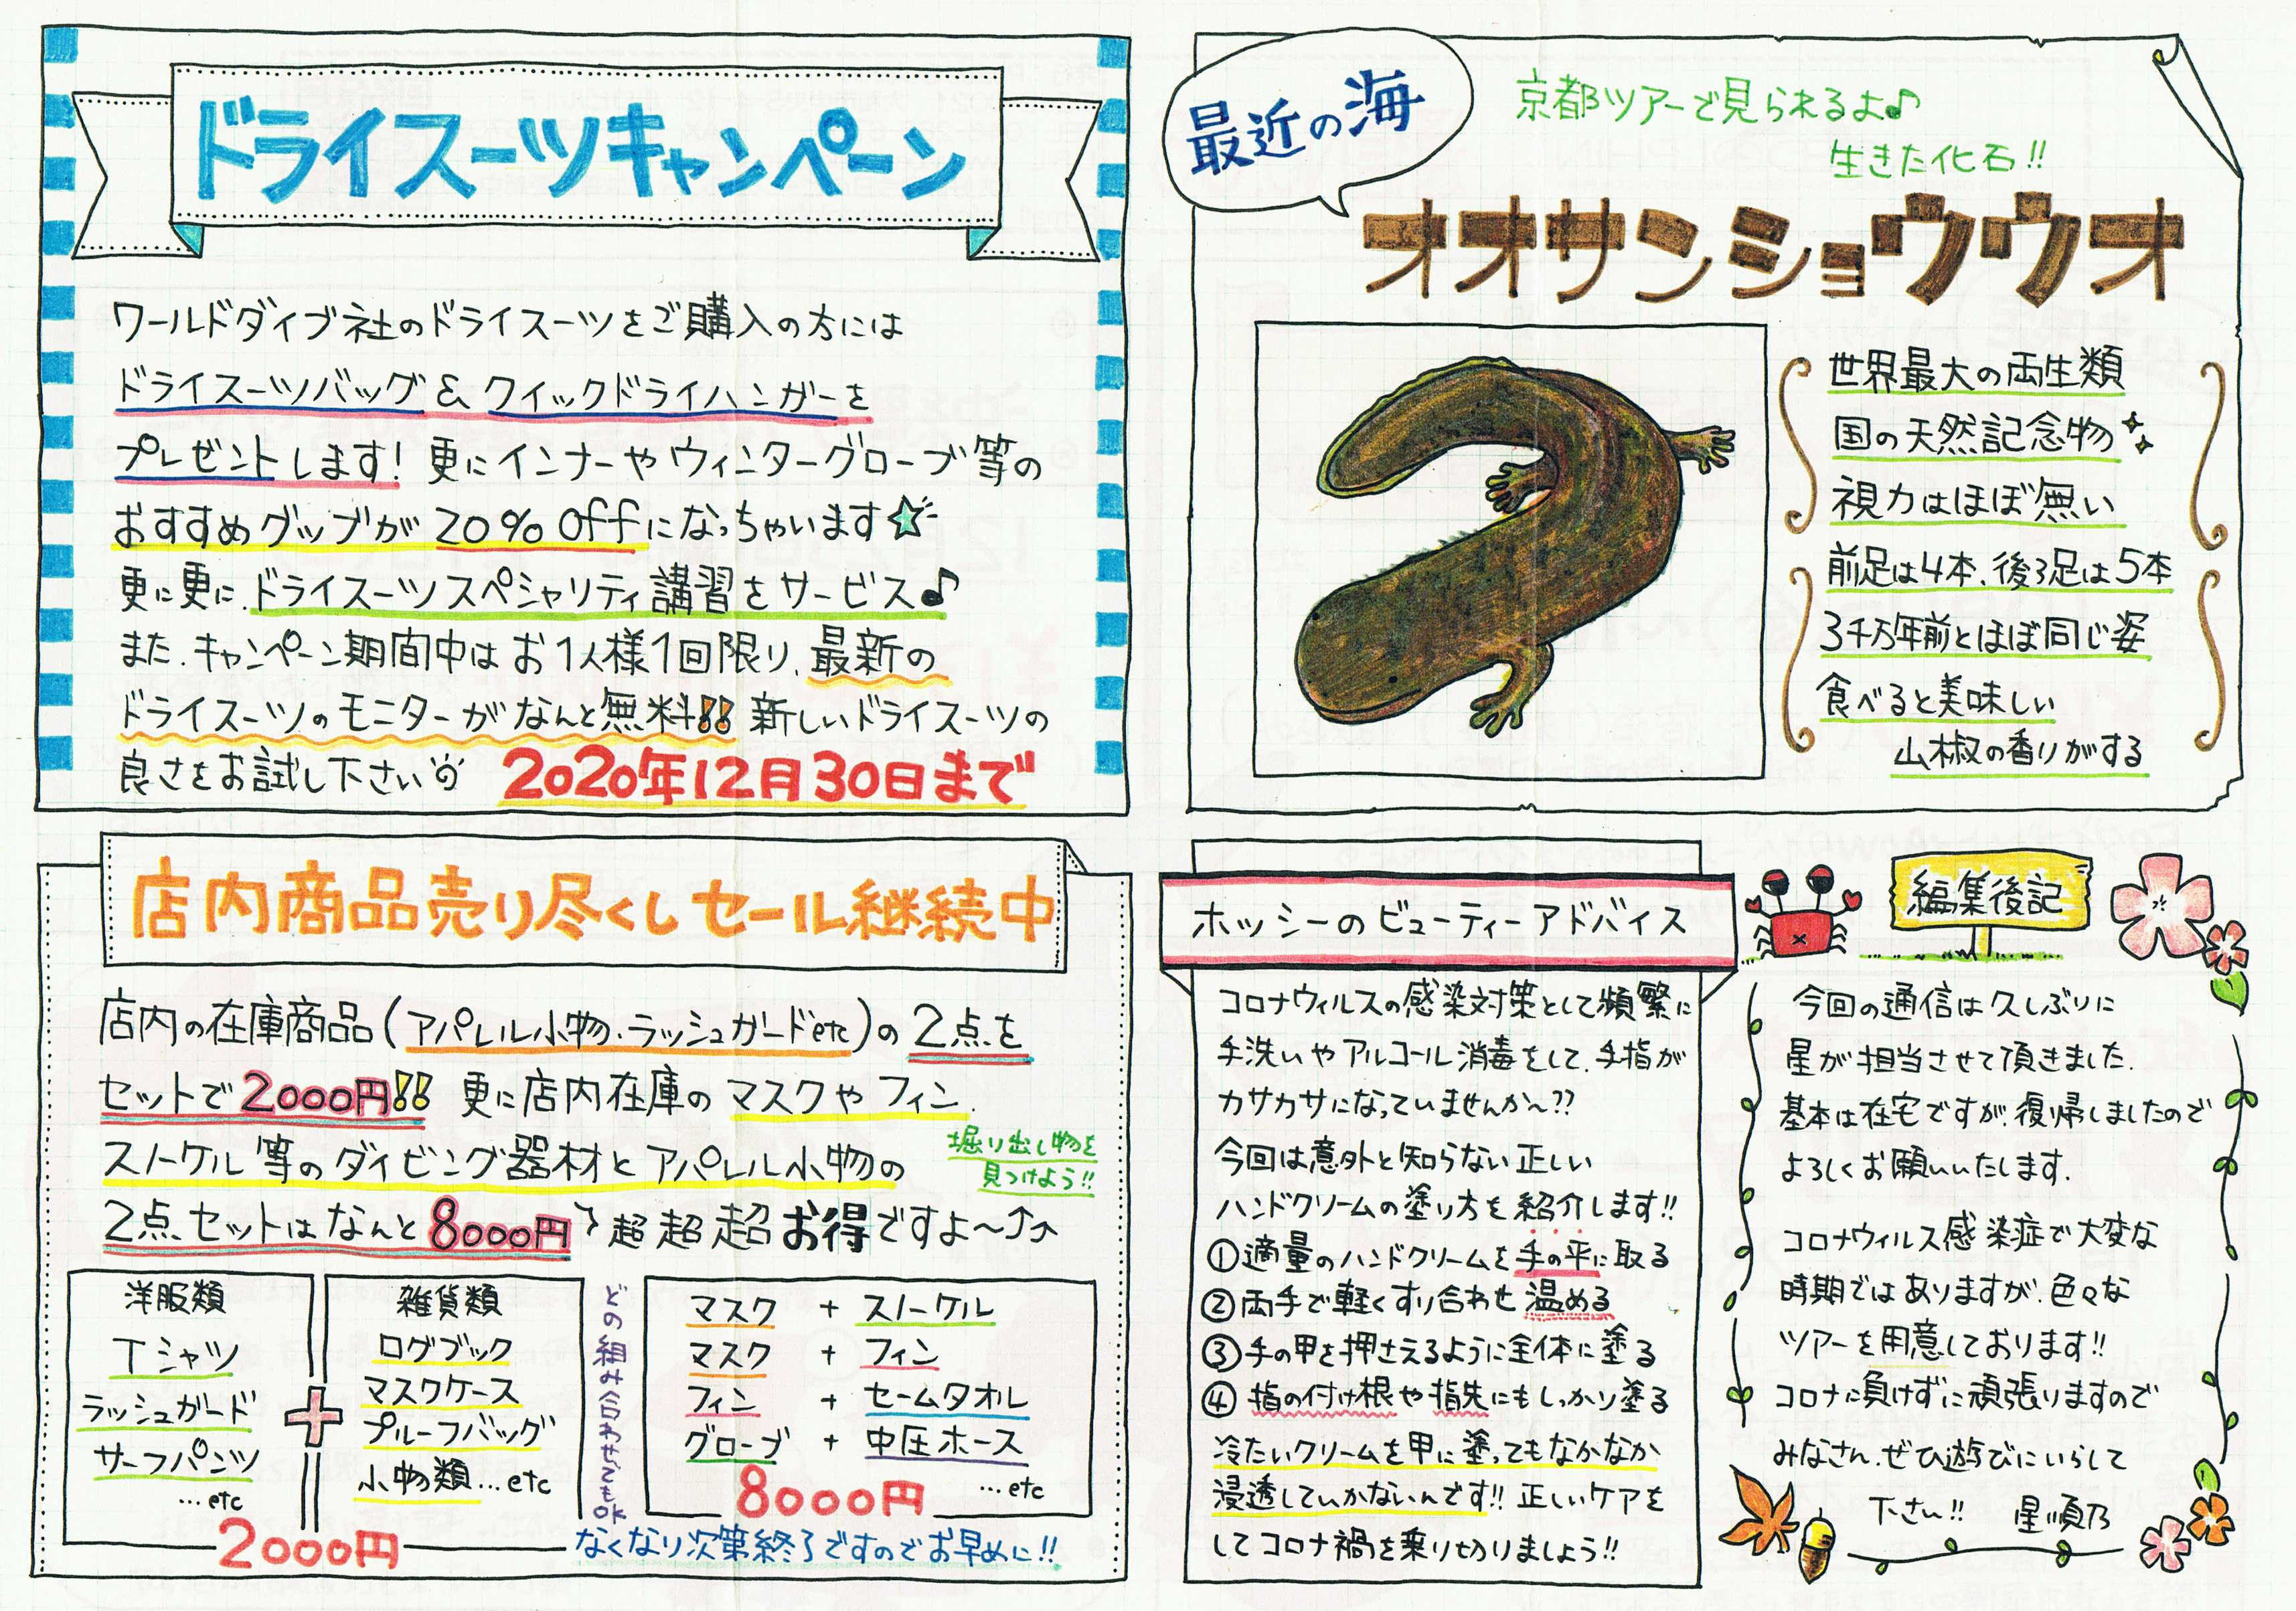 ドライスーツキャンペーン
ワールドダイブ社のドライスーツをご購入の方には
ドライスーツバッグ & クイックドライハンガーを
プレゼントします! 更にインナーやウィンターグローブ等の
おすすめグッズが20%offになっちゃいます☆
更に更に、ドライスーツスペシャリティ講習をサービス♪
また、キャンペーン期間中はお1人様1回限り、最新の
ドライスーツのモニターがなんと無料!! 新しいドライスーツの
良さをお試し下さい
2020年12月30日まで
最近の海
京都ツアーで見られるよ♪
生きた化石!!
オオサンショウウオ
世界最大の両生類
国の天然記念物
視力はほぼ無い
前足は4本、後ろ足は5本
3千万年前とほぼ同じ姿
食べると美味しい
山椒の香りがする
店内商品売り尽くしセール継続中
店内の在庫商品(アパレル小物・ラッシュガードetc)の2点を
セットで2000円!! 更に店内在庫のマスクやフィン、
スノーケル等のダイビング器材とアパレル小物の
堀り出し物を
見つけよう!!
2点セットはなんと8000円 超超超お得ですよ〜
洋服類
Tシャツ
ラッシュガード
サーフパンツ
…etc
+
雑貨類
ログブック
マスクケース
プルーフバッグ
小物類…etc
2000円
どの組み合わせでもOK
マスク + スノーケル
マスク + フィン
フィン + セームタオル
グローブ + 中圧ホース
…etc
8000円
なくなり次第終了ですのでお早めに!!
ホッシーのビューティーアドバイス
コロナウィルスの感染対策として頻繁に
手洗いやアルコール消毒をして、手指が
カサカサになっていませんか〜??
今回は意外と知らない正しい
ハンドクリームの塗り方を紹介します!!
①適量のハンドクリームを手の平に取る
②両手で軽くすり合わせ温める
③手の甲を押さえるように全体に塗る
④指の付け根や指先にもしっかり塗る
冷たいクリームを甲に塗ってもなかなか
浸透していかないんです!! 正しいケアを
してコロナ禍を乗り切りましょう!!
編集後記
今回の通信は久しぶりに
星が担当させて頂きました。
基本は在宅ですが、復帰しましたので
よろしくお願いいたします。
コロナウィルス感染症で大変な
時期ではありますが、色々な
ツアーを用意しております!!
コロナに負けずに頑張りますので
みなさん、ぜひ遊びにいらして
下さい!! 星順乃